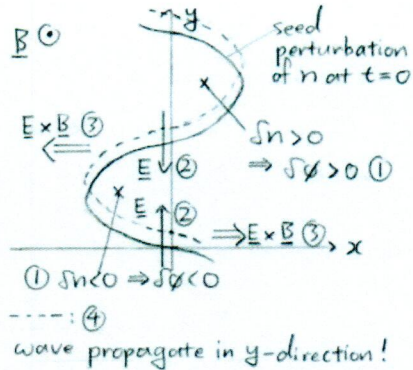 y
B
seed
perturbation
of n at t=0
E×B ③
δn>0
⇒ δø>0 ①
E ②
E ②
⇒ E×B ③
x
① δn<0 ⇒ δø<0
-----: ④
wave propagate in y-direction!